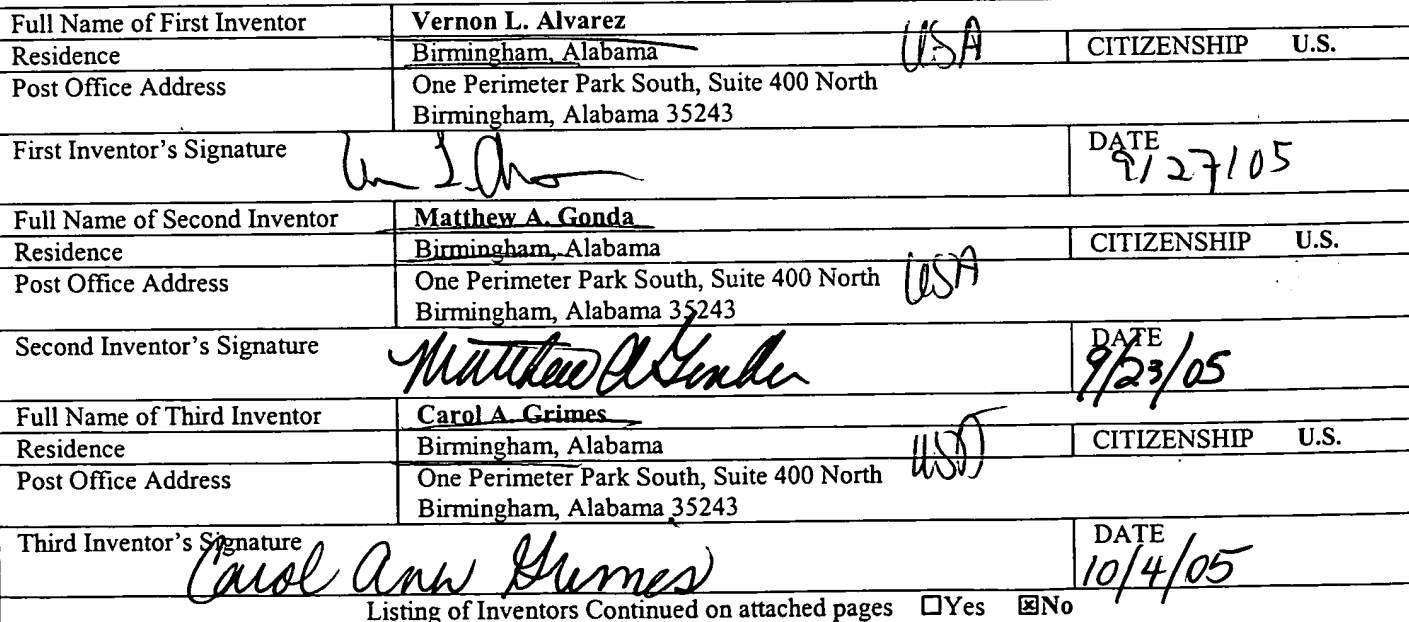 Full Name of First Inventor Vernon L. Alvarez
Residence Birmingham, Alabama USA CITIZENSHIP U.S.
Post Office Address One Perimeter Park South, Suite 400 North
Birmingham, Alabama 35243
First Inventor's Signature DATE
9/27/05
Full Name of Second Inventor Matthew A. Gonda
Residence Birmingham, Alabama CITIZENSHIP U.S.
Post Office Address One Perimeter Park South, Suite 400 North USA
Birmingham, Alabama 35243
Second Inventor's Signature Matthew A Gonda DATE
9/23/05
Full Name of Third Inventor Carol A. Grimes
Residence Birmingham, Alabama USA CITIZENSHIP U.S.
Post Office Address One Perimeter Park South, Suite 400 North
Birmingham, Alabama 35243
Third Inventor's Signature DATE
Carol Ann Grimes 10/4/05
Listing of Inventors Continued on attached pages ☐Yes ☒No